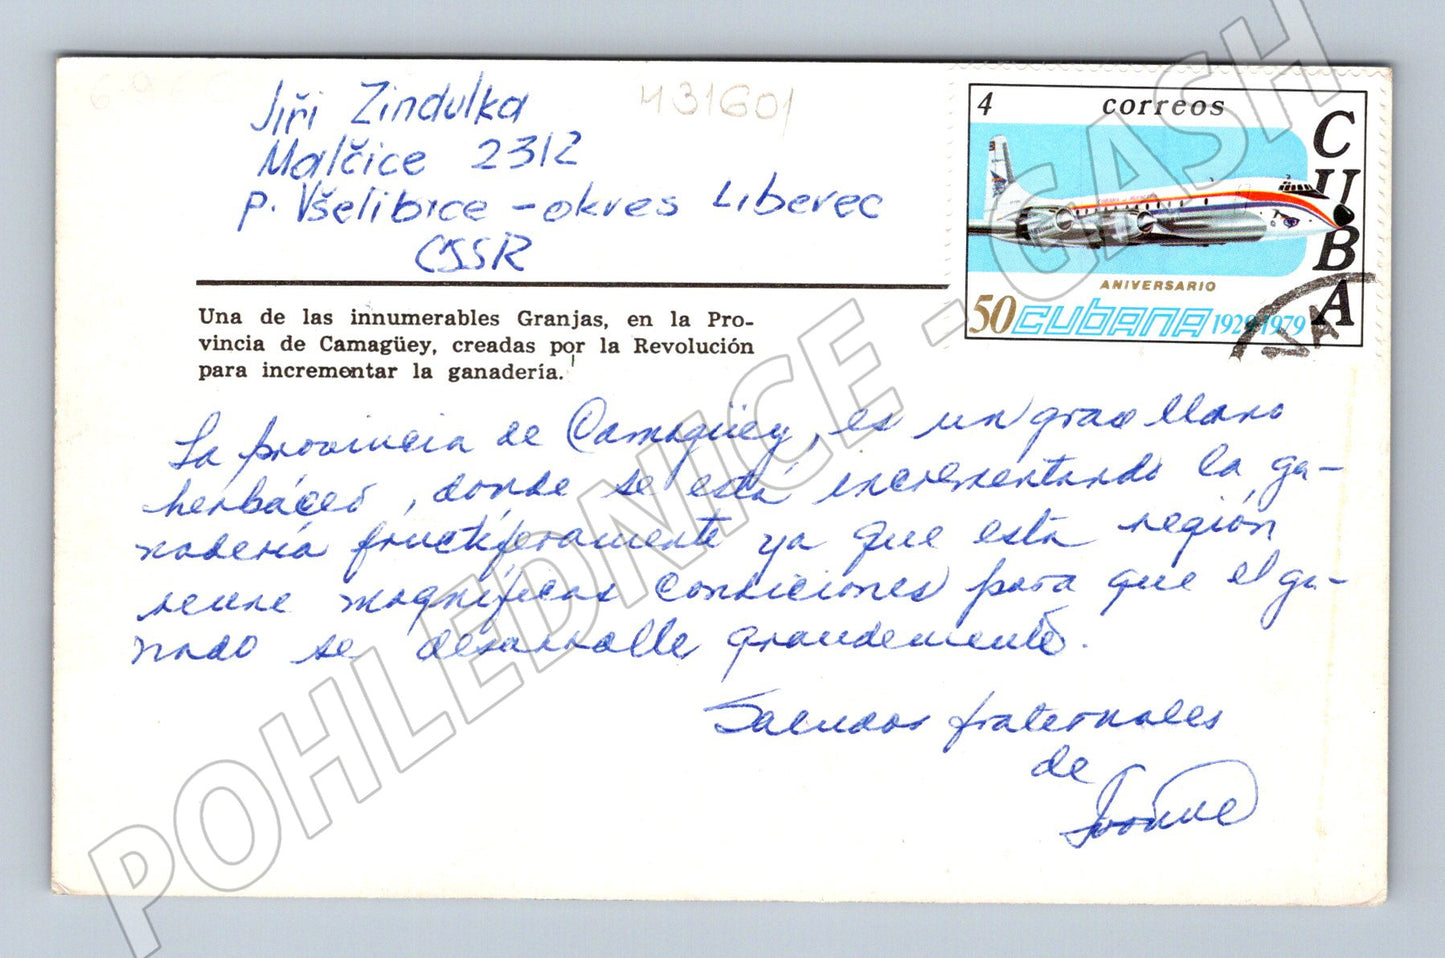 431601
Jiří Zindulka
Malčice 2312
p. Všelibice - okres Liberec
ČSSR
4
correos
CUBA
ANIVERSARIO
50 cubana 1929 1979
Una de las innumerables Granjas, en la Pro-
vincia de Camagüey, creadas por la Revolución
para incrementar la ganadería.
La provincia de Camagüey, es un gran llano
herbáceo, donde se está incrementando la ga-
nadería fructíferamente ya que esta región
reune magníficas condiciones para que el ga-
nado se desarrolle grandemente.
Saludos fraternales
de
Ivonne
POHLEDNICE - GASH